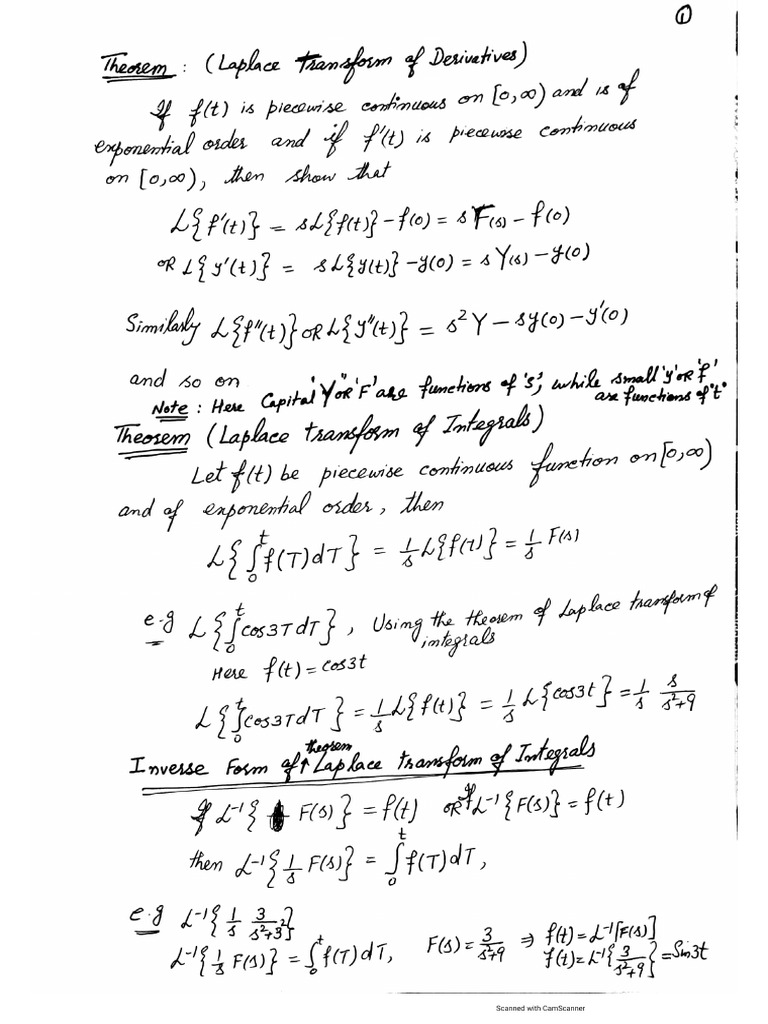 ①
Theorem : (Laplace Transform of Derivatives)
If f(t) is piecewise continuous on [0,∞) and is of
exponential order and if f'(t) is piecewise continuous
on [0,∞), then show that
L{f'(t)} = sL{f(t)} - f(0) = sF(s) - f(0)
OR L{y'(t)} = sL{y(t)} - y(0) = sY(s) - y(0)
Similarly L{f''(t)} OR L{y''(t)} = s²Y - sy(0) - y'(0)
and so on
Note : Here Capital 'Y' OR 'F' are functions of 's', while small 'y' OR 'f'
are functions of 't'
Theorem (Laplace transform of Integrals)
Let f(t) be piecewise continuous function on [0,∞)
and of exponential order, then
L{∫₀ᵗ f(T)dT} = 1/s L{f(t)} = 1/s F(s)
e.g L{∫₀ᵗ cos3TdT}, Using the theorem of Laplace transform of
integrals
Here f(t) = cos3t
L{∫₀ᵗ cos3TdT} = 1/s L{f(t)} = 1/s L{cos3t} = 1/s s/(s²+9)
Inverse Form of ↑ theorem Laplace transform of Integrals
If L⁻¹{F(s)} = f(t) OR If L⁻¹{F(s)} = f(t)
then L⁻¹{1/s F(s)} = ∫₀ᵗ f(T)dT,
e.g L⁻¹{1/s 3/(s²+3²)}
L⁻¹{1/s F(s)} = ∫₀ᵗ f(T)dT, F(s) = 3/(s²+9) ⇒ f(t) = L⁻¹[F(s)]
f(t) = L⁻¹{3/(s²+9)} = Sin3t
Scanned with CamScanner